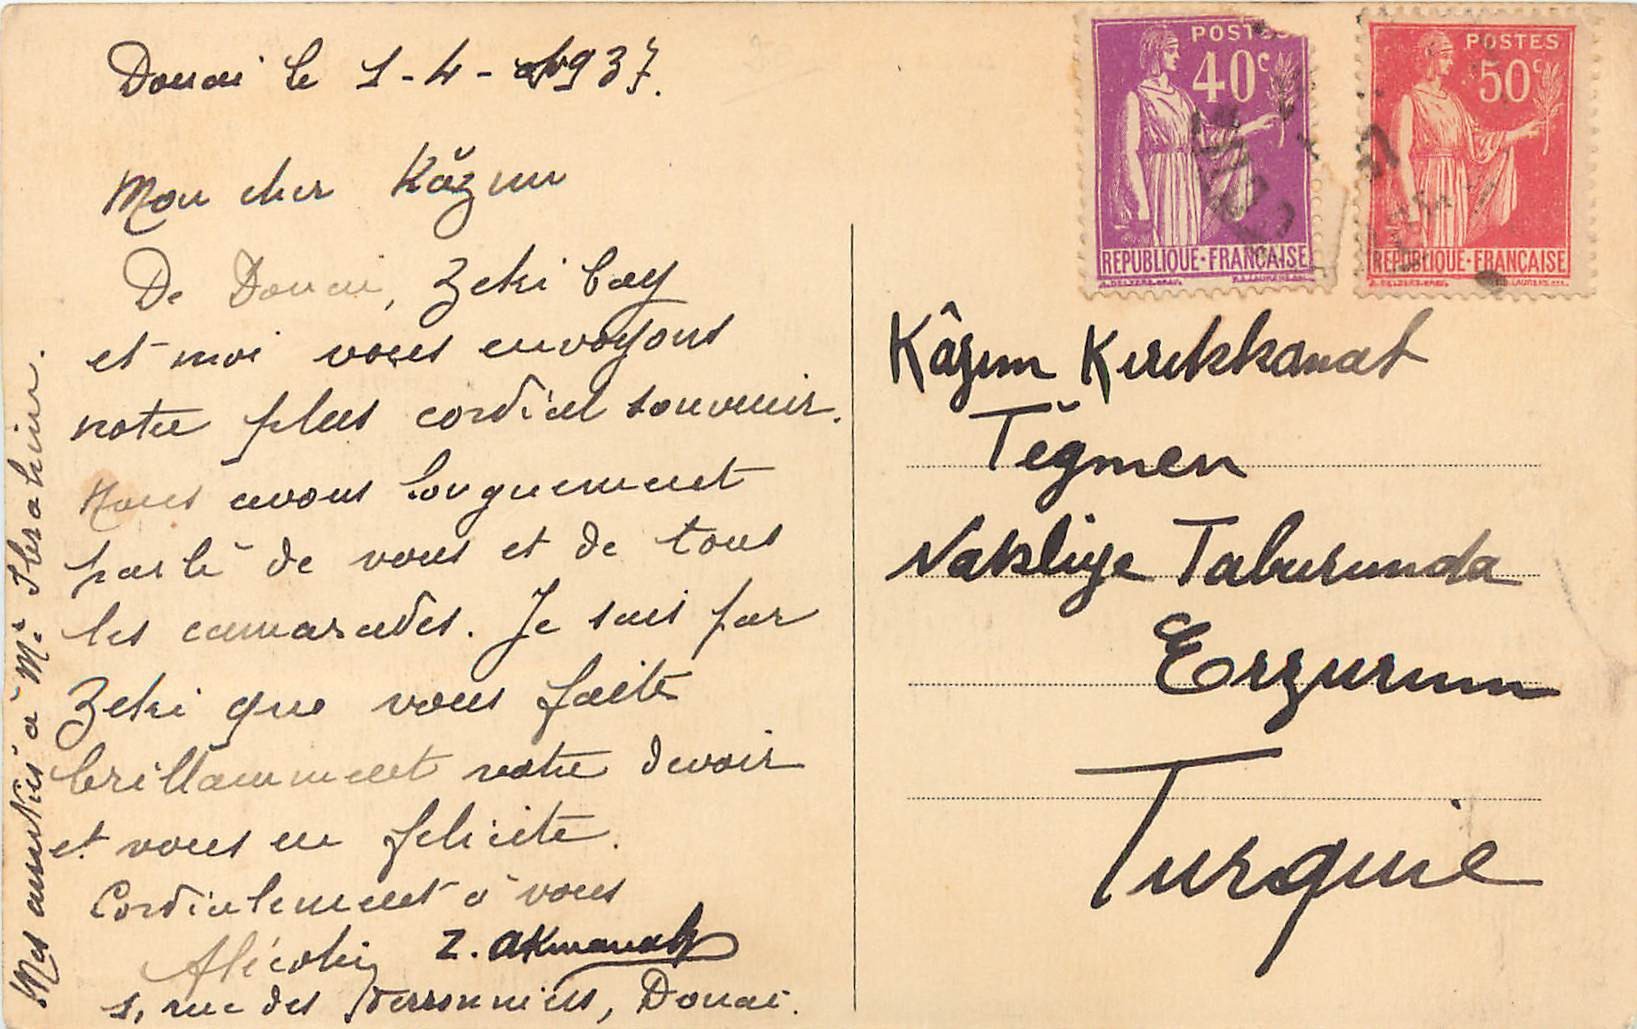 Douai le 1-4-1937.
Mon cher Kâzım
De Douai, Zeki bey
et moi vous envoyons
notre plus cordial souvenir.
Nous avons longuement
parlé de vous et de tous
les camarades. Je sais par
Zeki que vous faite
brillamment votre devoir
et vous en félicite.
Cordialement à vous
Z. Akmanalp
1, rue des Ferronniers, Douai.
Mes amitiés à Mr Ibrahim.
POSTES
40c
REPUBLIQUE·FRANÇAISE
POSTES
50c
REPUBLIQUE·FRANÇAISE
Kâzım Kırıkkanat
Teğmen
Nakliye Taburunda
Erzurum
Turquie